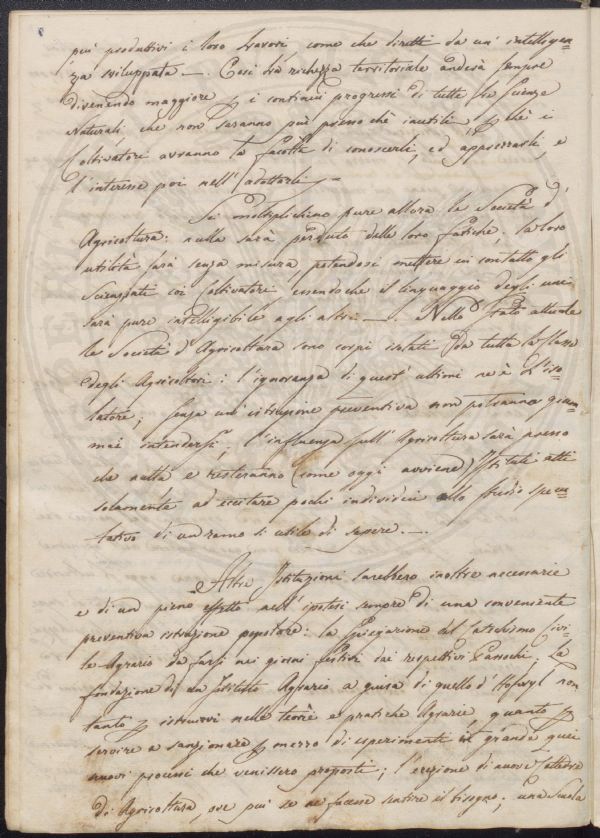 più produttivi i loro lavori, come che diretti da un' intelligen-
za sviluppata —. Così la richezza territoriale anderà sempre
divenendo maggiore p i continui progressi di tutte le Scienze
Naturali, che non saranno più presso chè inutili, p chè i
Coltivatori avranno la facoltà di conoscerli, ed apprezzarli, e
l'interesse poi nell' adottarli —
Si moltiplichino pure allora le Società d'
Agricoltura: nulla sarà perduto delle loro fatiche, la loro
utilità sarà senza misura potendosi mettere in contatto gli
Scienziati coi Coltivatori essendo che il linguaggio degli uni
sarà pure intelligibile agli altri —. Nello stato attuale
le Società d'Agricoltura sono corpi isolati da tutta la classe
degli Agricoltori: l'ignoranza di quest' ultimi ne è l'iso-
latore; senza un' istruzione preventiva non potranno giam-
mai intendersi, l'influenza sull' Agricoltura sarà presso
che nulla e resteranno (come oggi avviene) Istituti atti
solamente ad eccitare pochi individui allo studio specu-
lativo di un ramo si utile di sapere. —.
Altre Istituzioni sarebbero inoltre necessarie
e di un pieno effetto nell' ipotesi sempre di una conveniente
preventiva istruzione popolare: la spiegazione del Catechismo Civi-
le Agrario da farsi nei giorni festivi dai rispettivi Parochi, La
fondazione di un Istituto Agrario a guisa di quello d'Hofwyl non
tanto p istruirsi nelle teorie e pratiche Agrarie, quanto p
servire a sanzionare p mezzo di esperimenti in grande quei
nuovi processi che venissero proposti; l'erezione di nuove Cattedre
di Agricoltura, ove più se ne facesse sentire il bisogno; una Scuola